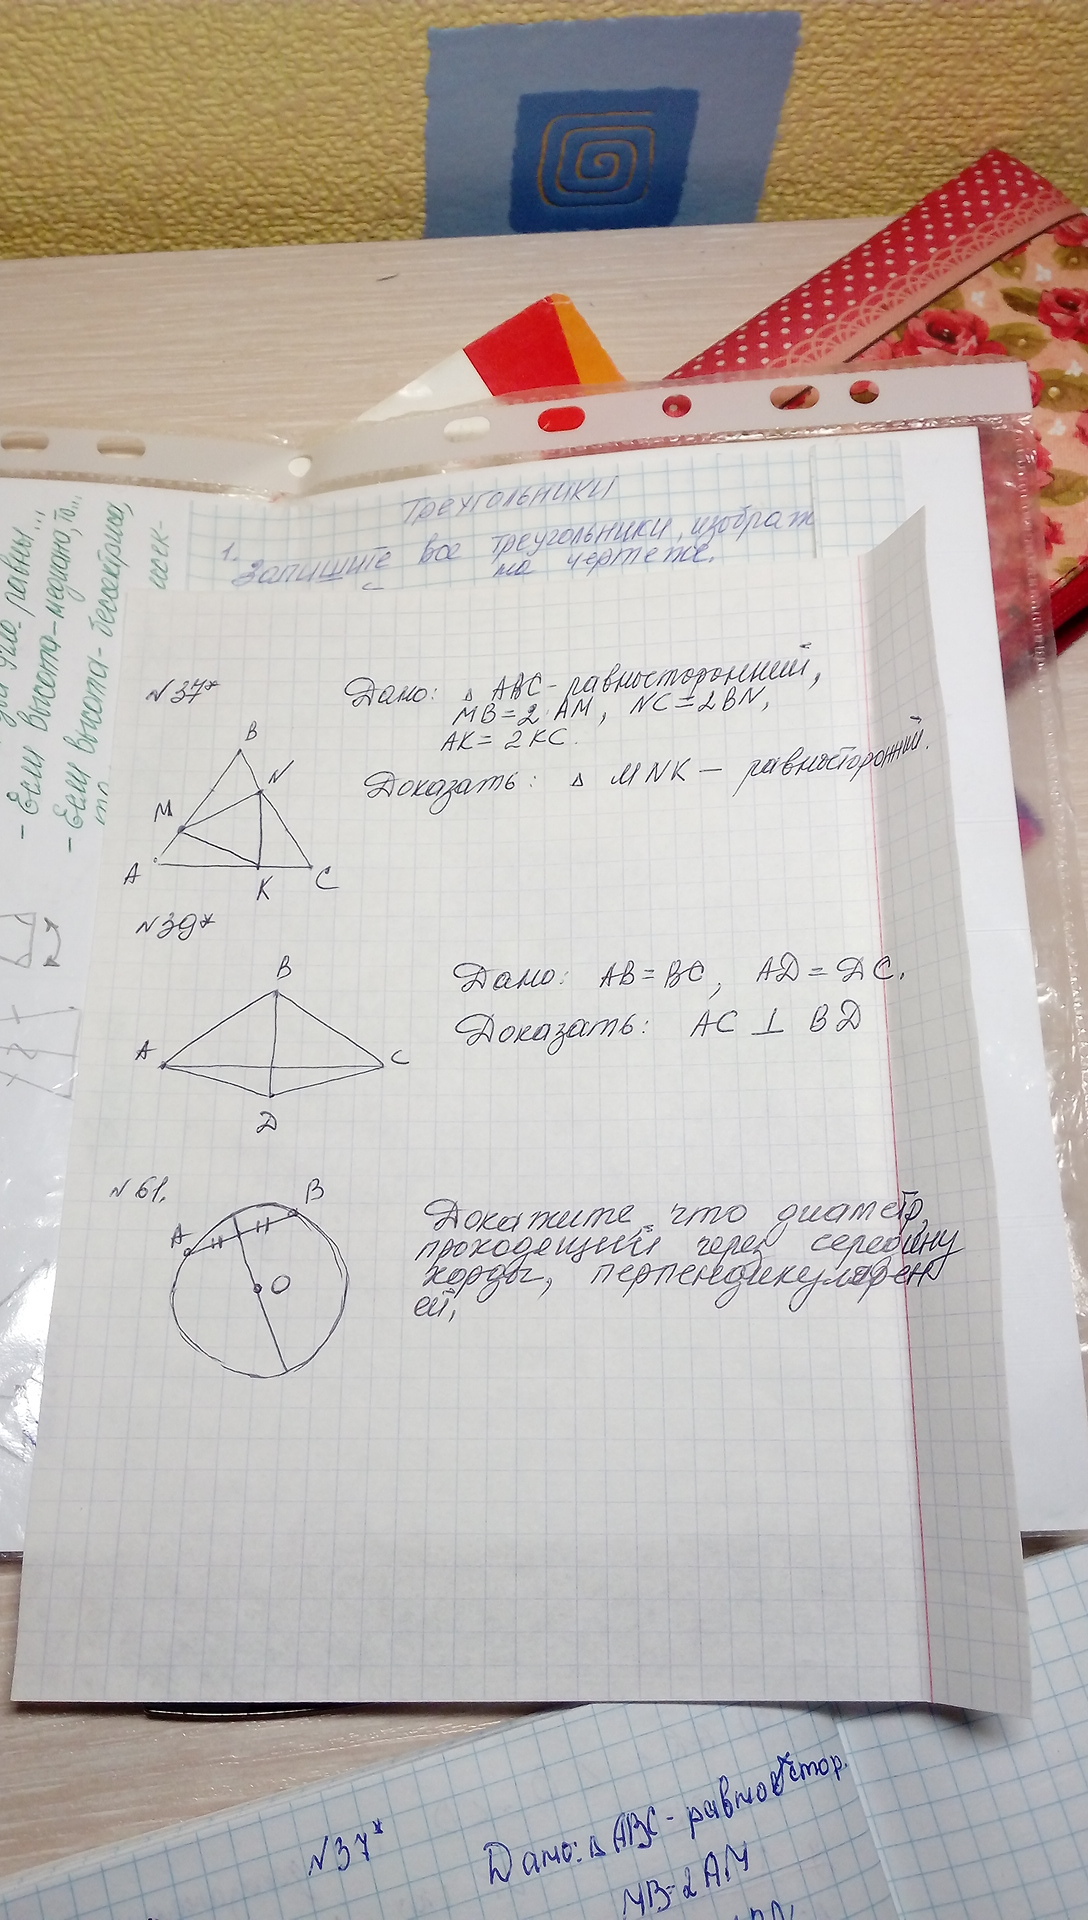 Треугольники
1. Запишите все треугольники, изображ
на чертеже.
равны...
- Если высота - медиана, то...
- Если высота - биссектриса,
N37*
Дано: △ ABC - равносторонний,
MB = 2 AM, NC = 2BN,
AK = 2KC.
Доказать: △ MNK – равносторонний.
B
N
M
A
K
C
N39*
Дано: AB = BC, AD = DC.
Доказать: AC ⊥ BD
B
A
C
D
N61.
A
B
O
Докажите, что диаметр,
проходящий через середину
хорды, перпендикулярен
ей.
N37*
Дано: △ ABC - равностор.
MB=2AM